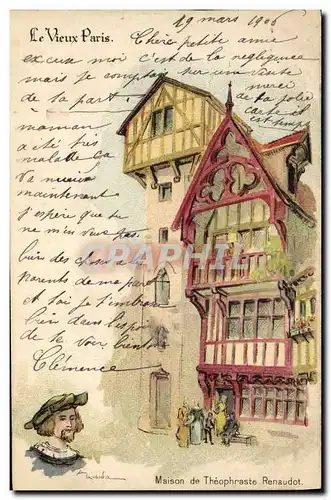 19 mars 1906
Le Vieux Paris.
Chère petite amie
excuse moi c'est de la négligence
mais je comptais sur une visite
de ta part. merci
de ta jolie
carte
maman
a été très
malade ça
va mieux
maintenant
j'espère que tu
ne m'en veux pas
bien des choses à tes
parents de ma part
et toi je t'embrasse
bien dans l'espoir
de te voir bientôt
Clémence
CPAPHIL.COM
Maison de Théophraste Renaudot.